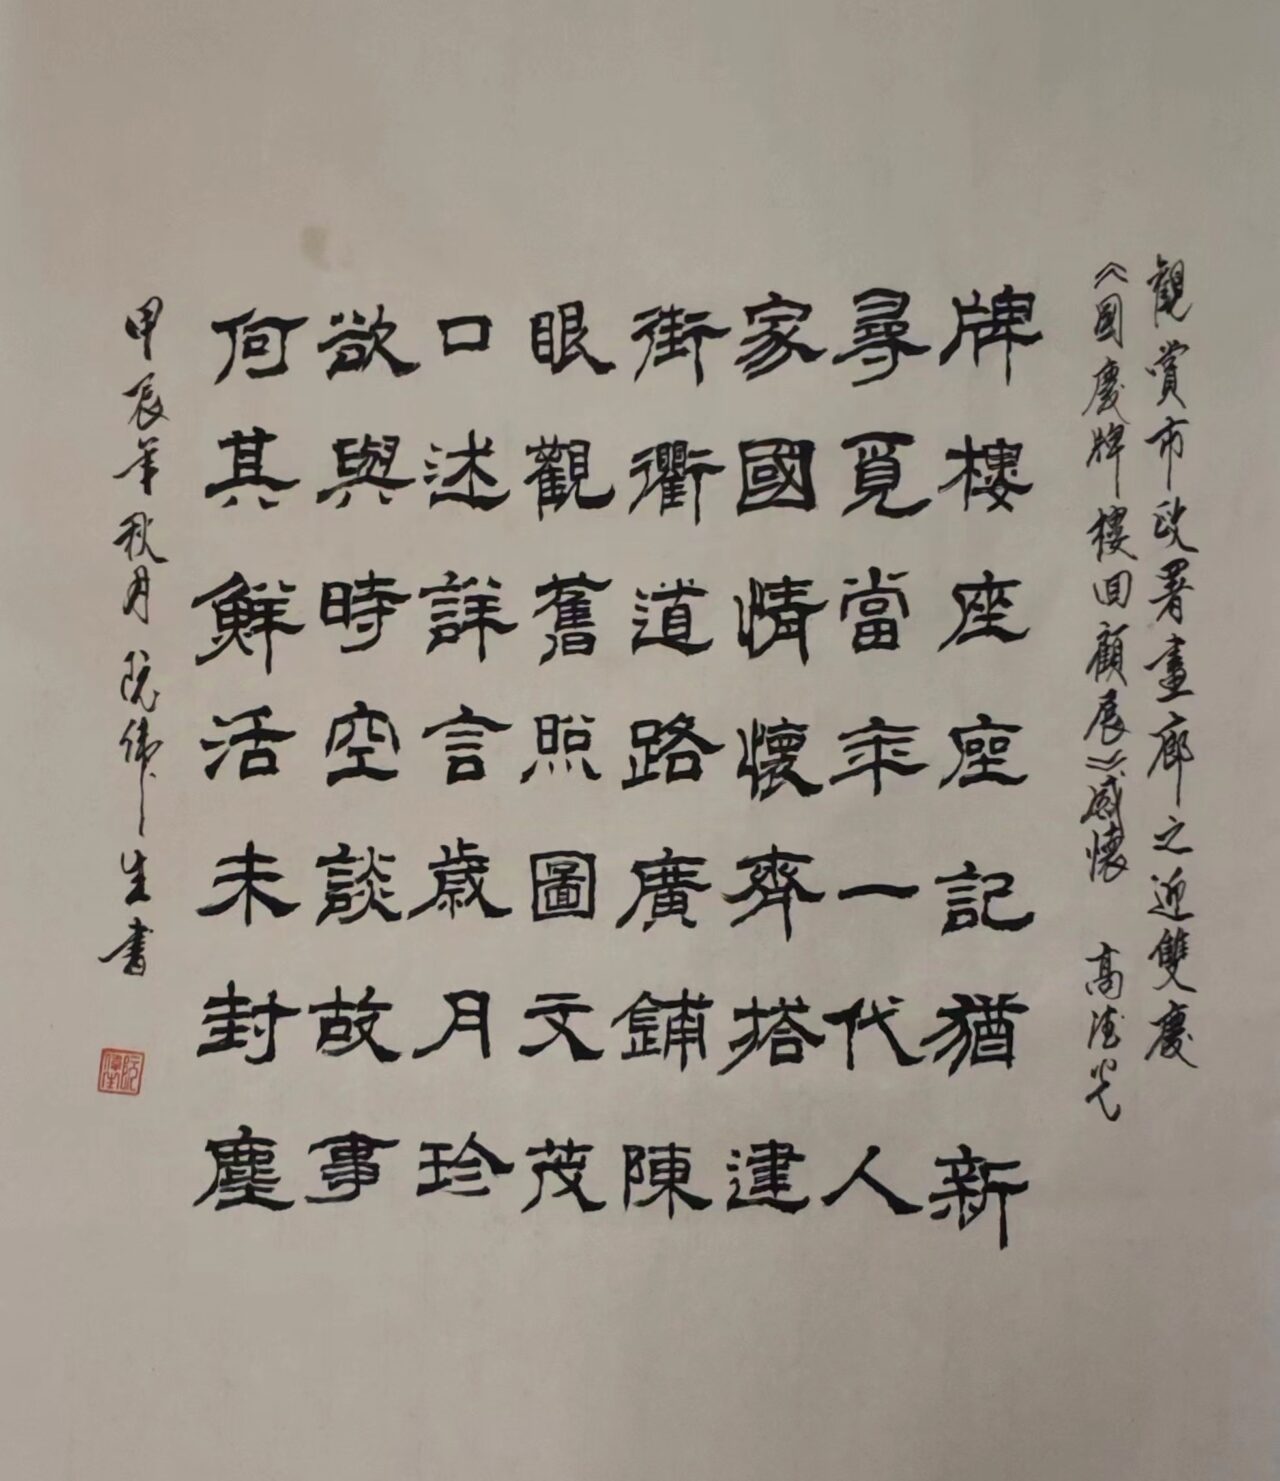 觀賞市政署畫廊之迎雙慶
《國慶牌樓回顧展》感懷 高德光
牌樓座座記猶新
尋覓當年一代人
家國情懷齊搭建
街衢道路廣鋪陳
眼觀舊照圖文茂
口述詳言歲月珍
欲與時空談故事
何其鮮活未封塵
甲辰年秋月阮偉生書